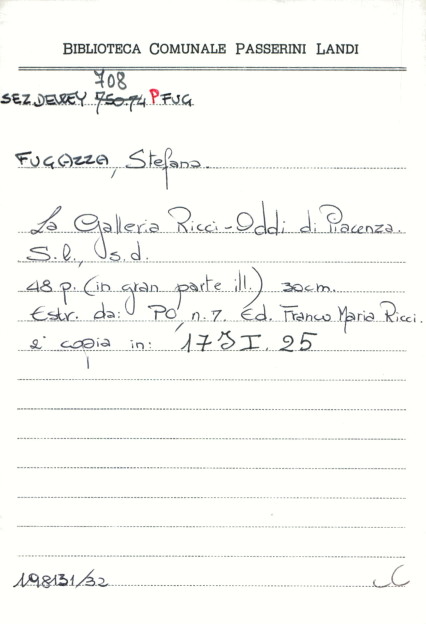 BIBLIOTECA COMUNALE PASSERINI LANDI
708
SEZ. DEWEY 750.74 P FUG
FUGAZZA, Stefano.
La Galleria Ricci-Oddi di Piacenza.
S.l., s.d.
48 p. (in gran parte ill.) 30cm.
Estr. da: PO, n. 7. Ed. Franco Maria Ricci.
2ª copia in: 173 I. 25
198131/32